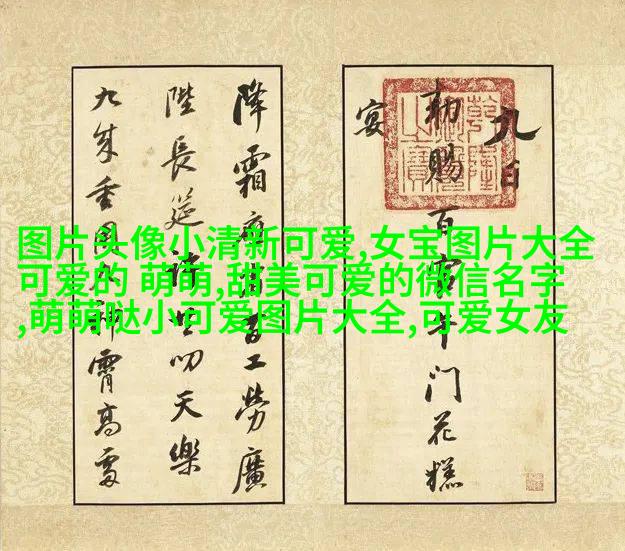 九日
勅賜百官午門花糕
宴
降霜百工勞廣
陛長筵叨天樂
九成重霄高
图片头像小清新可爱,女宝图片大全
可爱的 萌萌,甜美可爱的微信名字
,萌萌哒小可爱图片大全,可爱女友